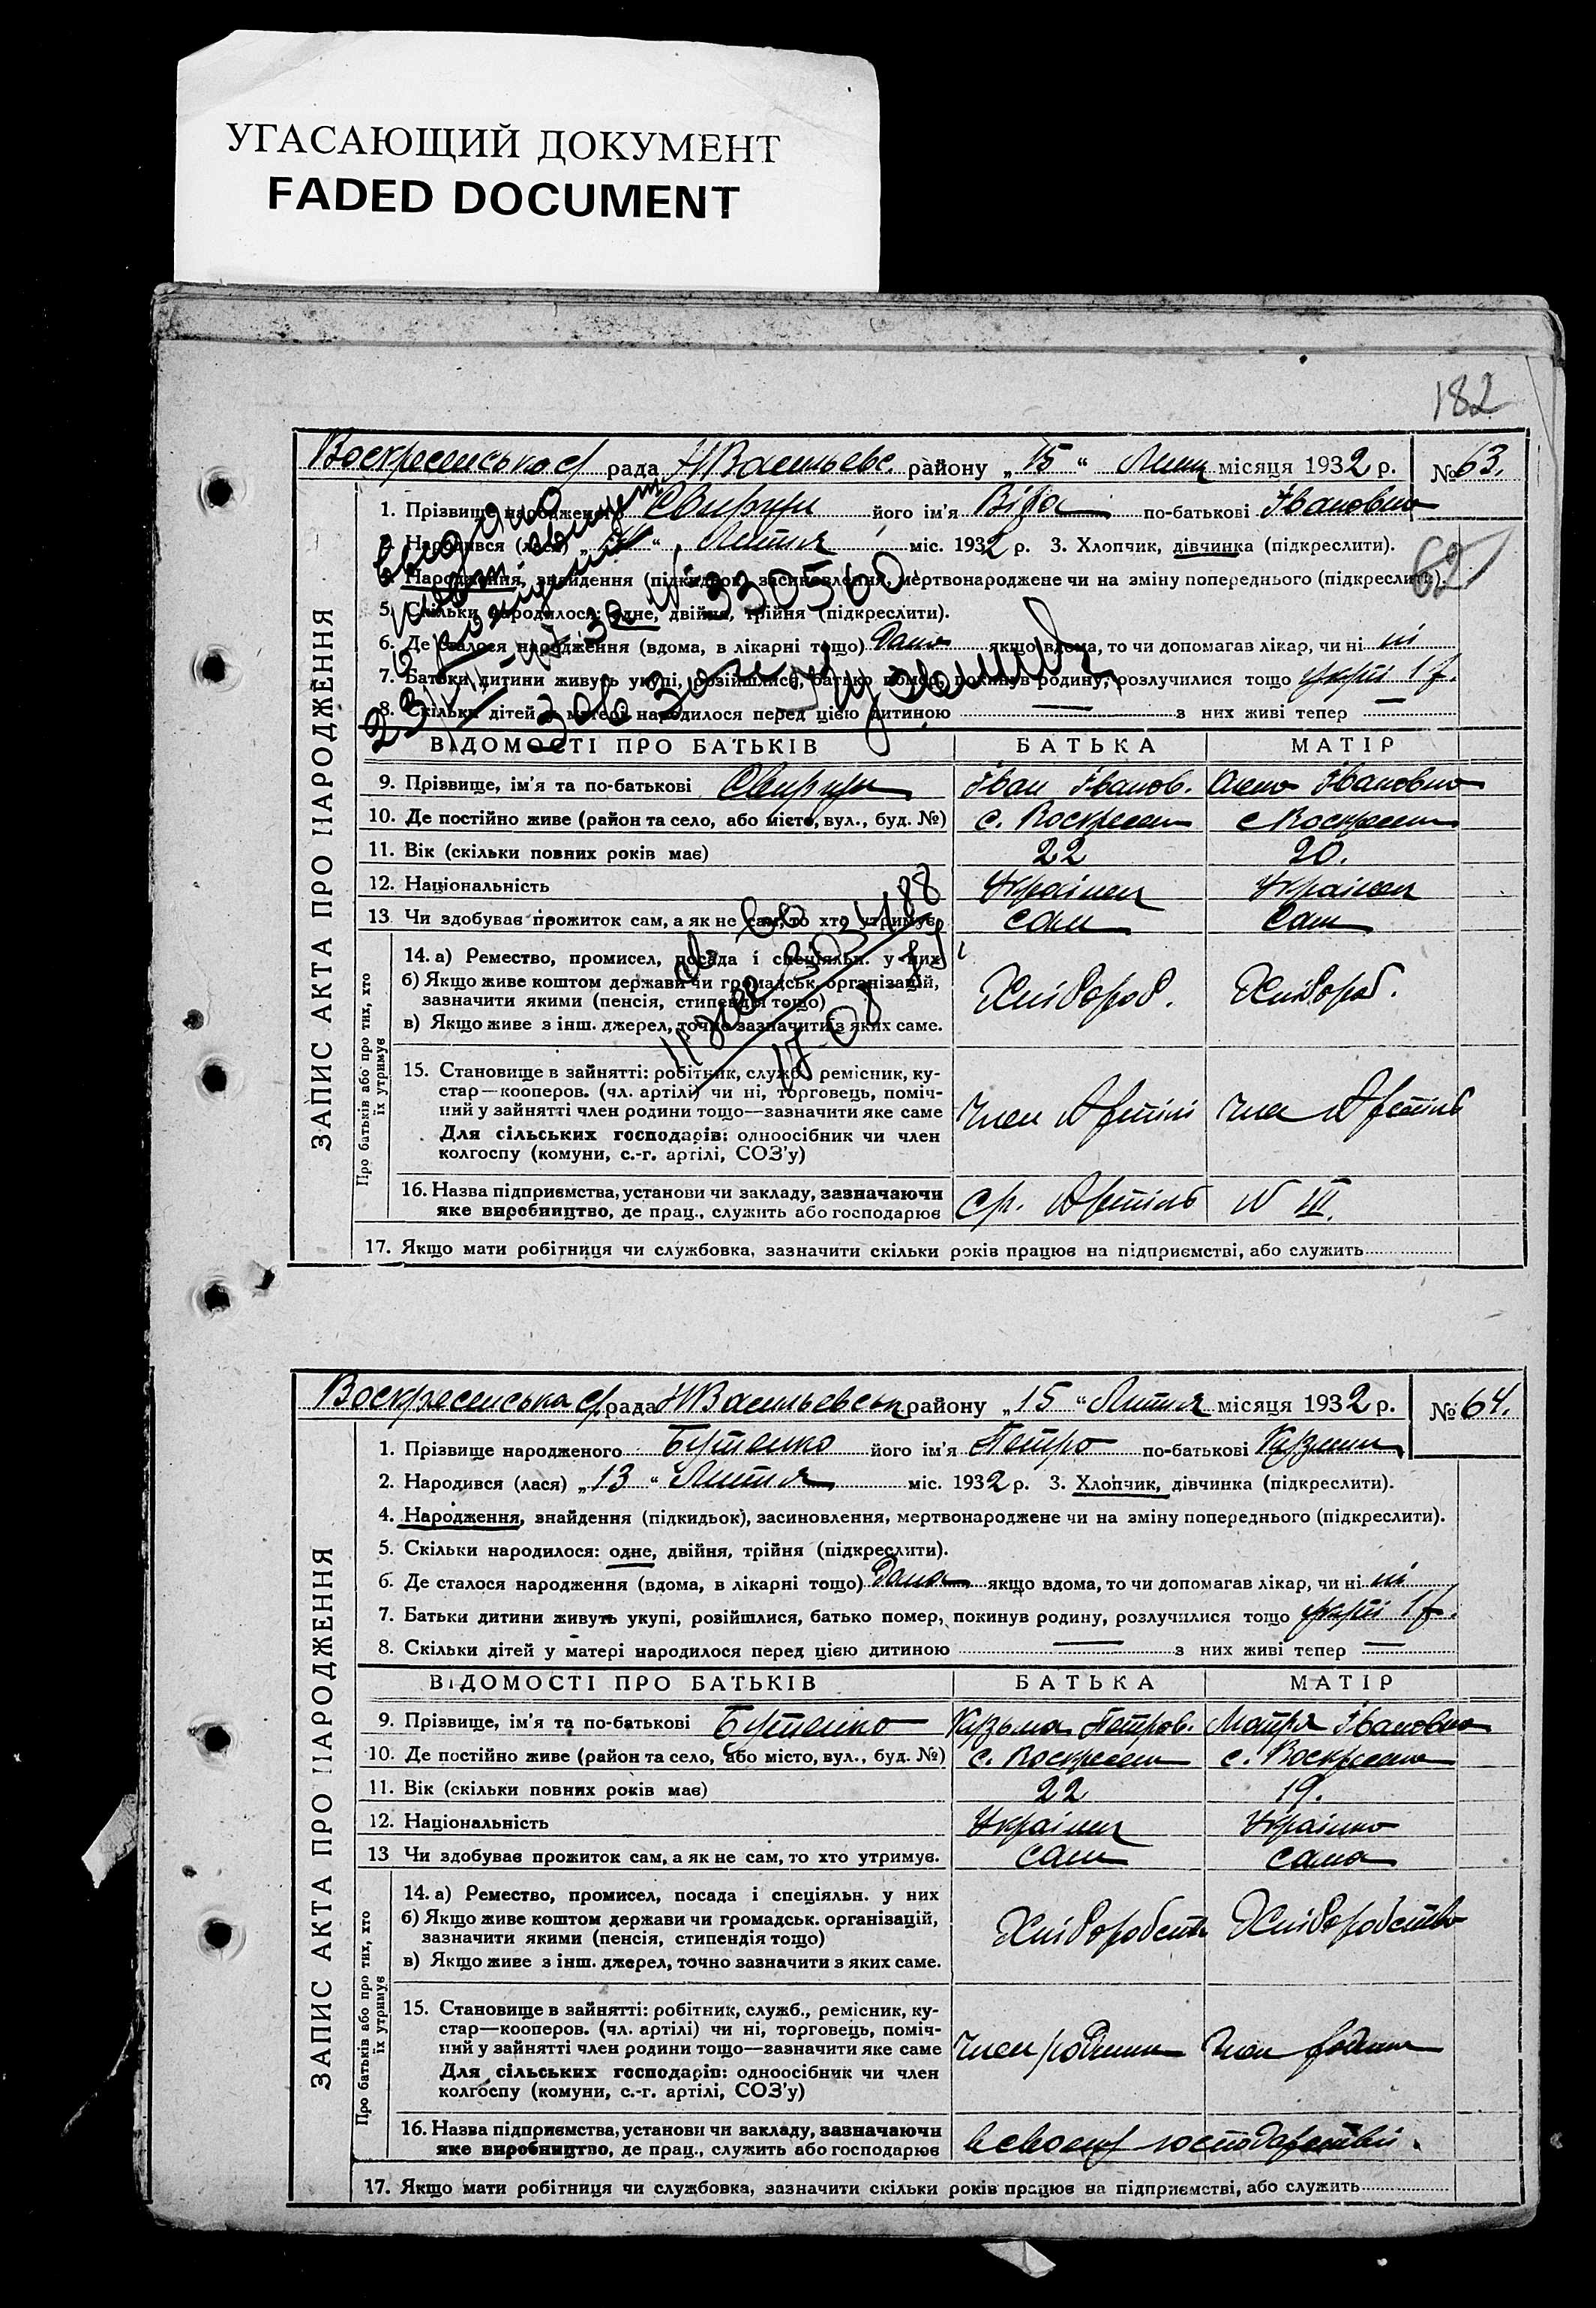 УГАСАЮЩИЙ ДОКУМЕНТ
FADED DOCUMENT
182
ЗАПИС АКТА ПРО НАРОДЖЕННЯ
Воскресенська с/ рада НВасильевс. району „15“ Липц місяця 1932 р. № 63.
1. Прізвище народженого його ім'я Віра по-батькові Івановна
2. Народився (лася) „ “ Липця міс. 1932 р. 3. Хлопчик, дівчинка (підкреслити).
62
4. Народження, знайдення (підкидьок), засиновлення, мертвонароджене чи на зміну попереднього (підкреслити).
5. Скільки народилося: одне, двійня, трійня (підкреслити).
6. Де сталося народження (вдома, в лікарні тощо) Дома якщо вдома, то чи допомагав лікар, чи ні ні
7. Батьки дитини живуть укупі, розійшлися, батько помер, покинув родину, розлучилися тощо укупі 1 р.
8. Скільки дітей у матері народилося перед цією дитиною — з них живі тепер —
№ 330560
ВІДОМОСТІ ПРО БАТЬКІВ БАТЬКА МАТІР
9. Прізвище, ім'я та по-батькові Іван Іванов. Івановна
10. Де постійно живе (район та село, або місто, вул., буд. №) с. Воскресен с Воскресен
11. Вік (скільки повних років має) 22 20.
12. Національність Українец Українец
13. Чи здобував прожиток сам, а як не сам, то хто утримує. сам сам
Про батьків або про тих, хто їх утримує
14. а) Ремество, промисел, посада і спеціяльн. у них
б) Якщо живе коштом держави чи громадськ. організацій,
зазначити якими (пенсія, стипендія тощо) Хлібороб. Хлібороб.
в) Якщо живе з інш. джерел, точно зазначити з яких саме.
15. Становище в зайнятті: робітник, служб., ремісник, ку-
стар—кооперов. (чл. артілі) чи ні, торговець, поміч-
ний у зайнятті член родини тощо—зазначити яке саме член Артілі член Артіль
Для сільських господарів: одноосібник чи член
колгоспу (комуни, с.-г. артілі, СОЗ'у)
16. Назва підприємства, установи чи закладу, зазначаючи
яке виробництво, де прац., служить або господарює Артіль № III.
17. Якщо мати робітниця чи службовка, зазначити скільки років працює на підприємстві, або служить
ЗАПИС АКТА ПРО НАРОДЖЕННЯ
Воскресенська с/ рада НВасильевськ району „15“ Липця місяця 1932 р. № 64.
1. Прізвище народженого Бутенко його ім'я Петро по-батькові Кузмич
2. Народився (лася) „13“ Липця міс. 1932 р. 3. Хлопчик, дівчинка (підкреслити).
4. Народження, знайдення (підкидьок), засиновлення, мертвонароджене чи на зміну попереднього (підкреслити).
5. Скільки народилося: одне, двійня, трійня (підкреслити).
6. Де сталося народження (вдома, в лікарні тощо) Дома якщо вдома, то чи допомагав лікар, чи ні ні
7. Батьки дитини живуть укупі, розійшлися, батько помер, покинув родину, розлучилися тощо укупі 1 р.
8. Скільки дітей у матері народилося перед цією дитиною — з них живі тепер —
ВІДОМОСТІ ПРО БАТЬКІВ БАТЬКА МАТІР
9. Прізвище, ім'я та по-батькові Бутенко Кузьма Петров. Мотря Івановна
10. Де постійно живе (район та село, або місто, вул., буд. №) с. Воскресен с. Воскресена
11. Вік (скільки повних років має) 22 19.
12. Національність Українец Українко
13 Чи здобував прожиток сам, а як не сам, то хто утримує. сам сама
Про батьків або про тих, хто їх утримує
14. а) Ремество, промисел, посада і спеціяльн. у них
б) Якщо живе коштом держави чи громадськ. організацій,
зазначити якими (пенсія, стипендія тощо) Хліборобств Хліборобство
в) Якщо живе з інш. джерел, точно зазначити з яких саме.
15. Становище в зайнятті: робітник, служб., ремісник, ку-
стар—кооперов. (чл. артілі) чи ні, торговець, поміч-
ний у зайнятті член родини тощо—зазначити яке саме член родини член родини
Для сільських господарів: одноосібник чи член
колгоспу (комуни, с.-г. артілі, СОЗ'у)
16. Назва підприємства, установи чи закладу, зазначаючи
яке виробництво, де прац., служить або господарює в своему господарстві.
17. Якщо мати робітниця чи службовка, зазначити скільки років працює на підприємстві, або служить